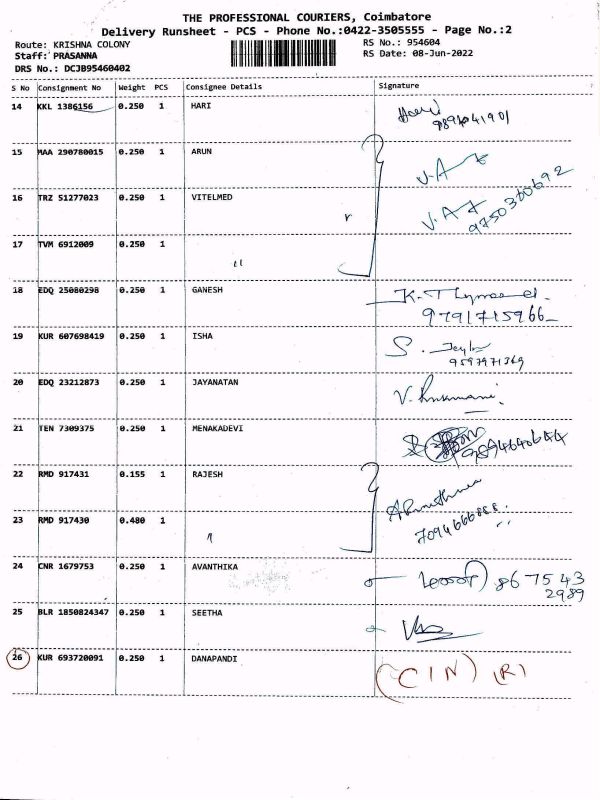 THE PROFESSIONAL COURIERS, Coimbatore
Delivery Runsheet - PCS - Phone No.:0422-3505555 - Page No.:2
Route: KRISHNA COLONY RS No.: 954604
Staff: PRASANNA RS Date: 08-Jun-2022
DRS No.: DCJB95460402
S No Consignment No Weight PCS Consignee Details Signature
14 KKL 1386156 0.250 1 HARI
15 MAA 290780015 0.250 1 ARUN V.A
16 TRZ 51277023 0.250 1 VITELMED V.A
9750300692
17 TVM 6912009 0.250 1 "
18 EDQ 25080298 0.250 1 GANESH K.
9791715966
19 KUR 607698419 0.250 1 ISHA S.
9597971369
20 EDQ 23212873 0.250 1 JAYANATAN V.
21 TEN 7309375 0.250 1 MENAKADEVI
22 RMD 917431 0.155 1 RAJESH
7094666888
23 RMD 917430 0.480 1
24 CNR 1679753 0.250 1 AVANTHIKA 867543
2989
25 BLR 1850824347 0.250 1 SEETHA
26 KUR 693720091 0.250 1 DANAPANDI (CIN) (R)